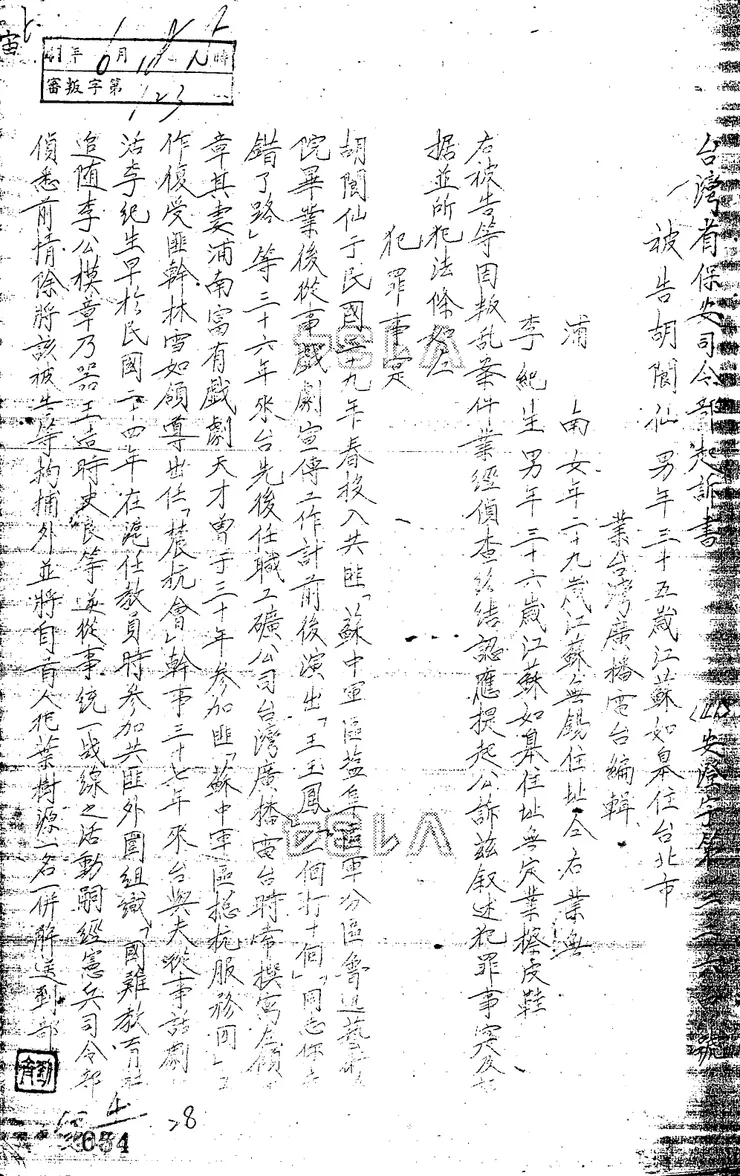 台灣省保安司令部起訴書
被告胡閬仙 男年三十五歲江蘇如皋住台北市
業台灣廣播電台編輯
浦南女年二十九歲江蘇無錫住址仝右業無
李紀生男年三十六歲江蘇如皋住址無定業擦皮鞋
右被告等因叛乱案件業經偵查終結認應提起公訴茲叙述犯罪事实及
据並所犯法條如左
犯罪事实
胡閬仙于民國二十九年春投入共匪「蘇中軍區塩阜區軍分區魯迅藝
院畢業後從事戲劇宣傳工作計前後演出「王玉鳳」「一個打十個」「同志你
錯了路」等三十六年來台先後任職工礦公司台灣廣播電台時常撰寫
章其妻浦南富有戲劇天才曾于三十年参加匪「蘇中軍區抗服務團」
作復受匪幹林雪如領導出任「農抗會」幹事三十七年來台與夫從事話劇
活李紀生早於民國二十四年在滬任教員時参加共匪外圍組識「國難教育社
追随李公樸章乃器王造時史良等並從事統一战線之活動嗣經憲兵司令部
偵悉前情除將該被告等拘捕外並將自首人犯葉樹源一名一併解送到部
41年10月
審叛字第123
時
號
28